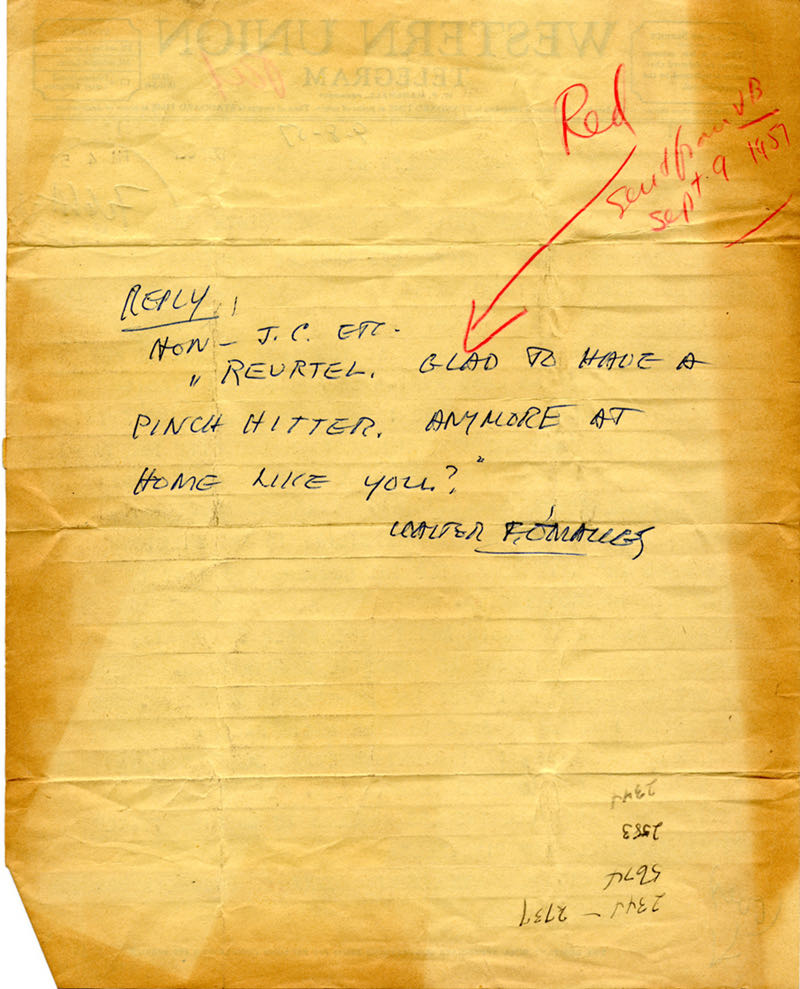 Red
Sent from VB
Sept. 9 1957
REPLY
HON - J.C. ETC.
" REURTEL. GLAD TO HAVE A
PINCH HITTER. ANYMORE AT
HOME LIKE YOU?"
WALTER F. O'MALLEY
WESTERN UNION
TELEGRAM
2344
2583
5674
2344 - 2737